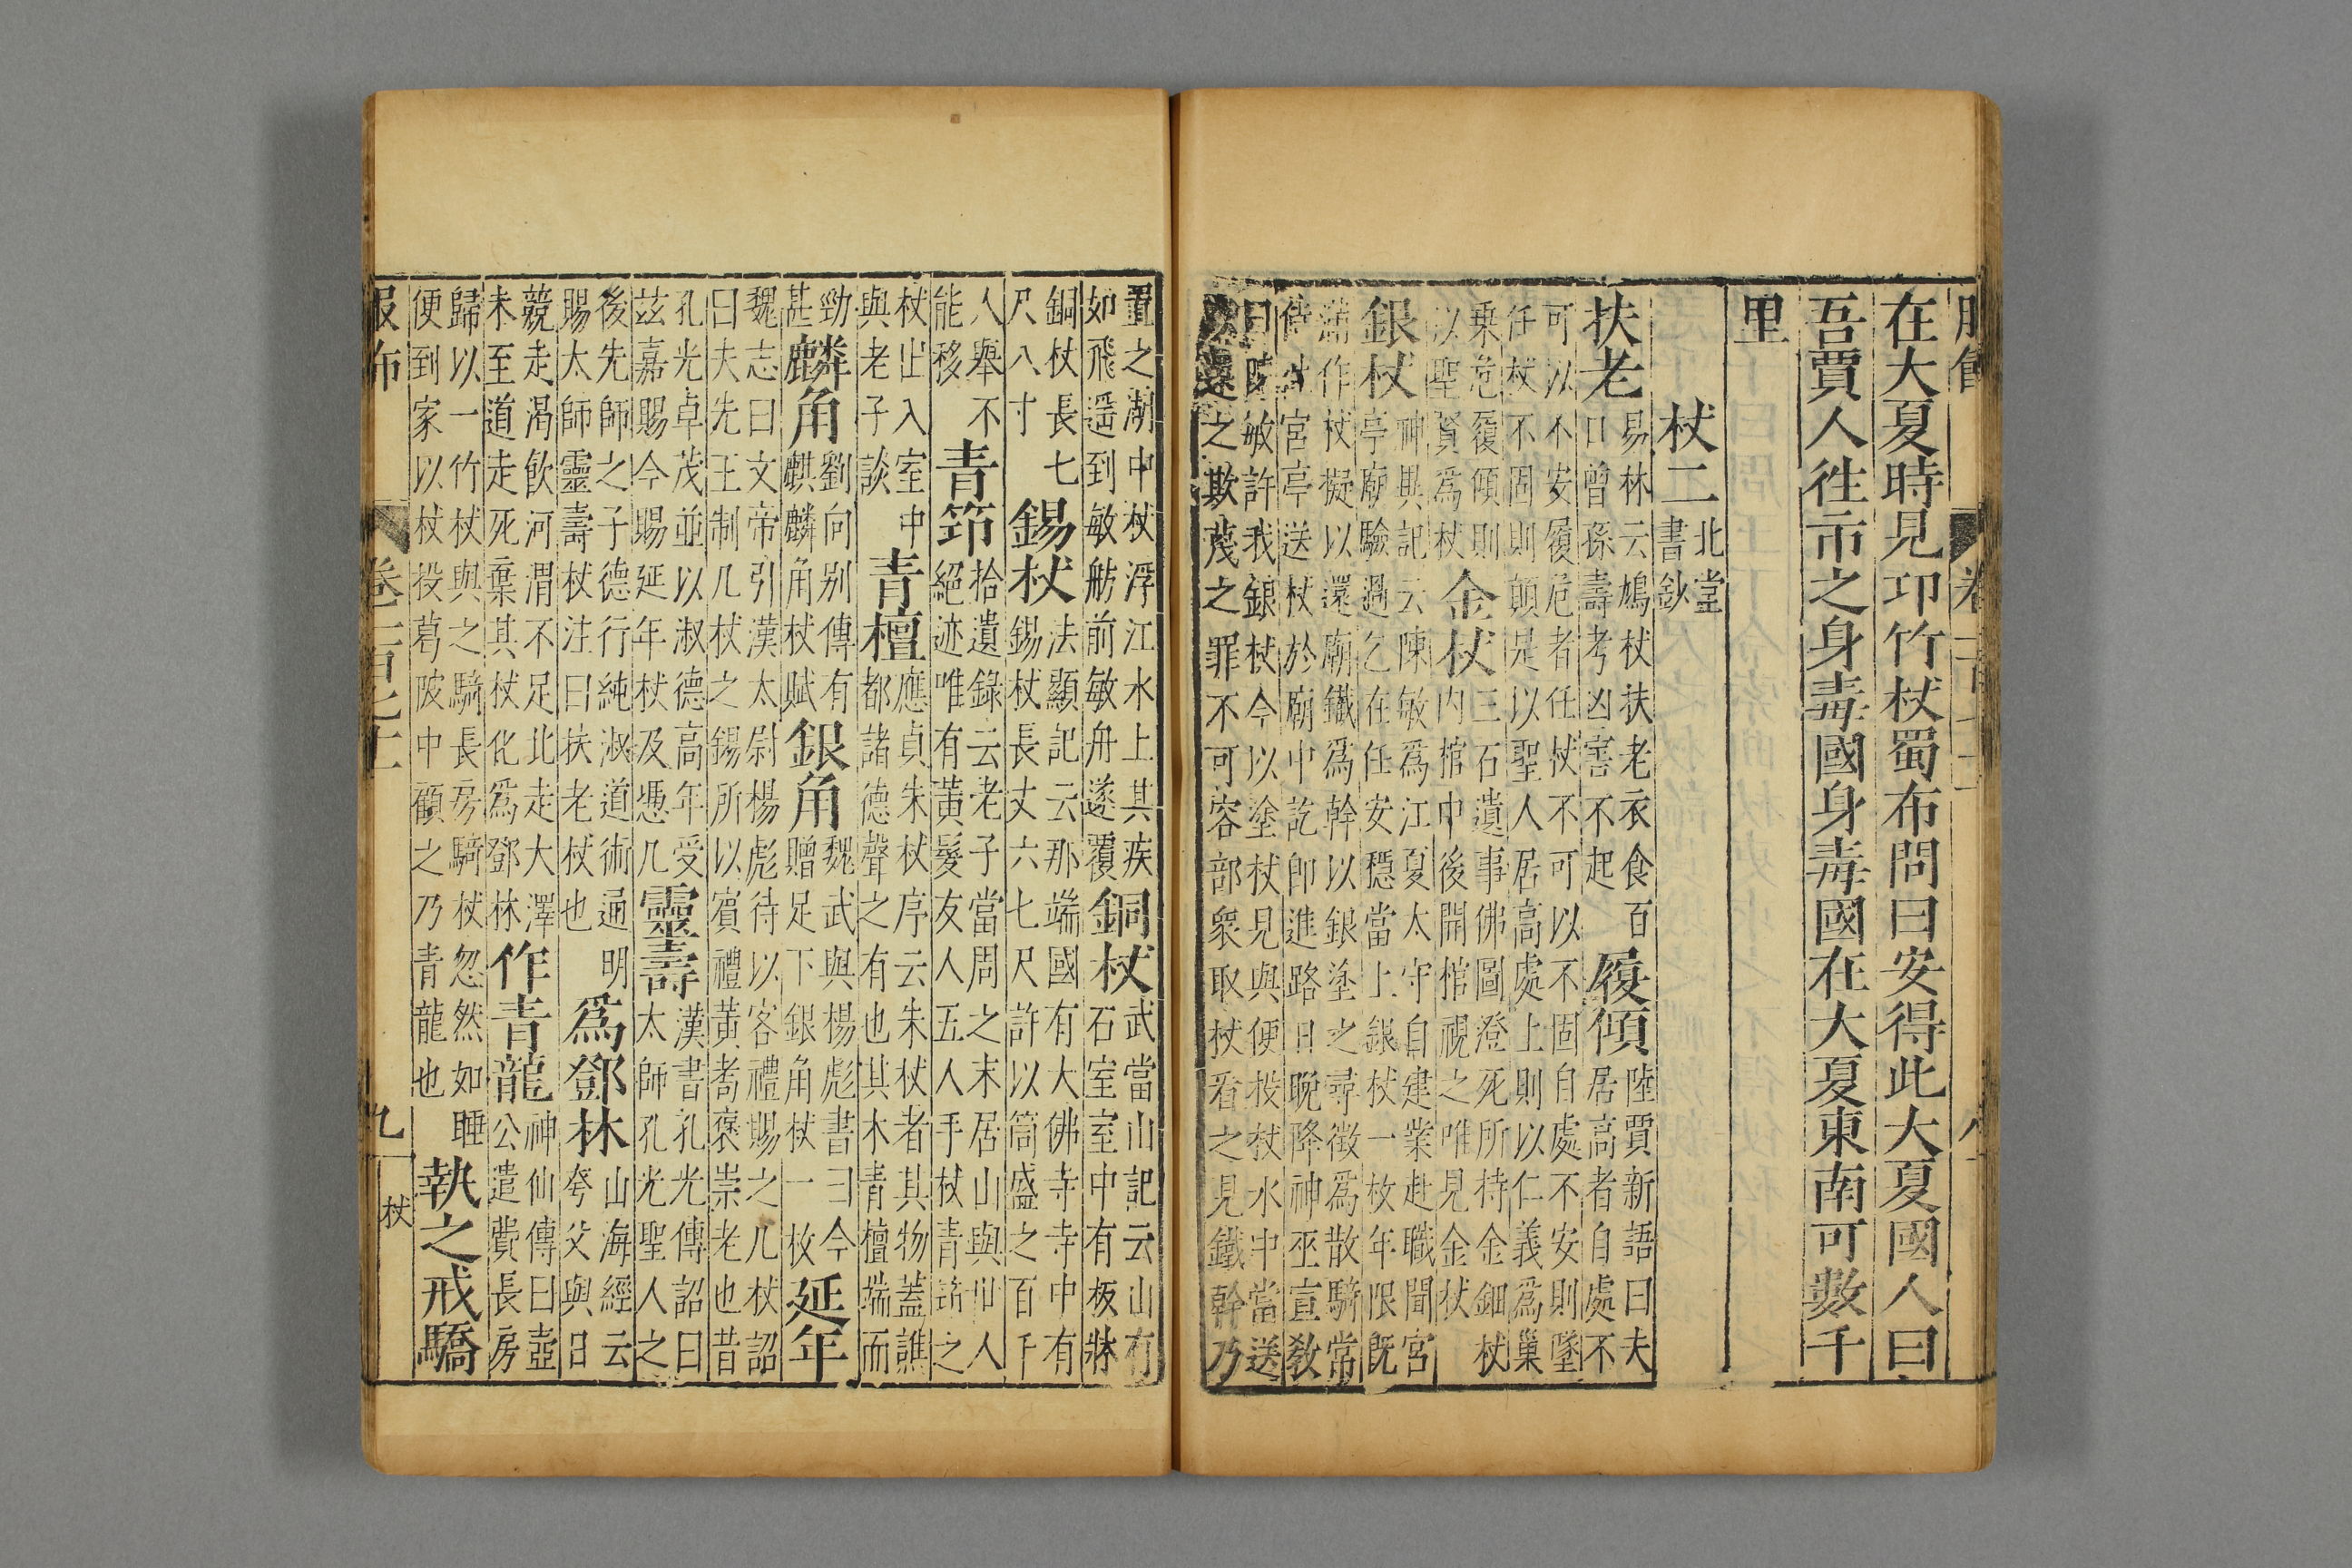 在大夏時見卭竹杖蜀布問曰安得此大夏國人曰
吾賈人往市之身毒國身毒國在大夏東南可數千
里
杖二
北堂
書鈔
扶老
易林云鳩杖扶老衣食百
口曾孫壽考凶害不起
履傾
陸賈新語曰夫
居高者自處不
可以不安履危者任杖不可以不固自處不安則墜
任杖不固則顛是以聖人居高處上則以仁義爲巢
乗危履傾則
以聖賢爲杖
金杖
三石遺事佛圖澄死所持金鈿杖
内棺中後開棺視之唯見金杖
銀杖
神異記云陳敏爲江夏太守自建業赴職聞宮
亭廟驗過乞在任安穩當上銀杖一枚年限旣
作杖擬以還廟鐵爲幹以銀塗之尋徵爲散騎常
宮亭送杖於廟中訖卽進路日晚降神巫宣敎
敏許我銀杖今以塗杖見與便投杖水中當送
之欺蔑之罪不可容部衆取杖看之見鐵幹乃
置之湖中杖浮江水上其疾
如飛遥到敏舫前敏舟遂覆
銅杖
武當山記云山有
石室室中有板牀
銅杖長七
尺八寸
錫杖
法顯記云那端國有大佛寺寺中有
錫杖長丈六七尺許以筒盛之百千
人舉不
能移
青筇
拾遺錄云老子當周之末居山與世人
絕迹唯有黃髮友人五人手杖青筇之
杖出入室中
與老子談
青檀
應貞朱杖序云朱杖者其物蓋譙
都諸德聲之有也其木青檀端而
勁
甚
麟角
劉向別傳有
麒麟角杖賦
銀角
魏武與楊彪書曰今
贈足下銀角杖一枚
延年
魏志曰文帝引漢太尉楊彪待以客禮賜之几杖詔
曰夫先王制几杖之錫所以賓禮黃耇褒崇老也昔
孔光卓茂並以淑德高年受
茲嘉賜今賜延年杖及憑几
靈壽
漢書孔光傳詔曰
太師孔光聖人之
後先師之子德行純淑道術通明
賜太師靈壽杖注曰扶老杖也
爲鄧林
山海經云
夸父與日
競走渴飲河渭不足北走大澤
未至道走死棄其杖化爲鄧林
作青龍
神仙傳曰壺
公遣費長房
歸以一竹杖與之騎長房騎杖忽然如睡
便到家以杖投葛陂中顧之乃青龍也
執之戒驕
卷一百七十
九
杖